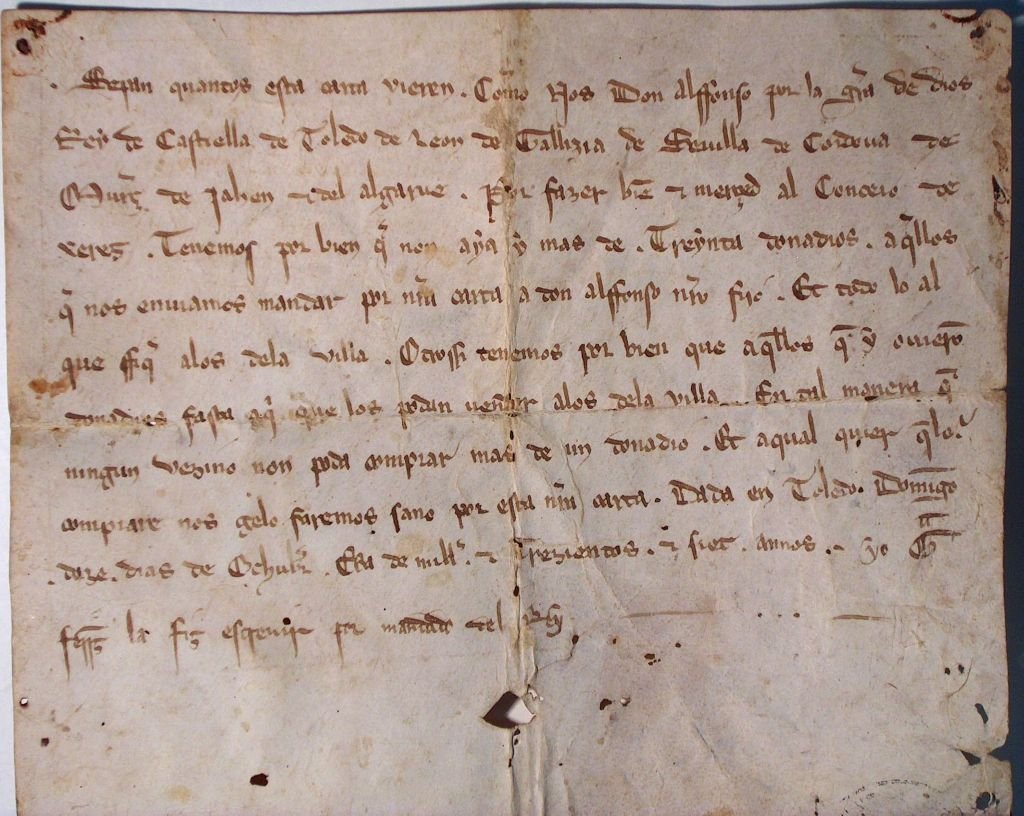 . Sepan quantos esta carta vieren . Com̃o Nos Don alffonso por la gr̃a de dios
Rey de Castiella de Toledo de Leon de Gallizia de Seuilla de Cordoua de
Murç̃ de Jahen ⁊ del algarue . Por fazer bie᷈ ⁊ merçed al Conceio de
Tenemos por bien q̃ non aya y mas de . Treynta donadios . aq̃llos
q̃ nos enuiamos mandar por nr̃a carta a don alffonso nr̃o fijo . Et todo lo al
que ffiq̃ alos dela villa . Otrossi tenemos por bien que aq̃llos q̃ y ouiero᷈
donadios fasta aq̃ que los podan vender alos dela villa . En tal manera q̃
ningun vezino non poda comprar mas de un donadio . Et aqual quier q̃ lo
comprare nos gelo faremos sano por esta nr̃a carta . Dada en Toledo . Domĩgo
. doze . dias de Ochubr̃ . Era de mill̃ . ⁊ Trezientos . ⁊ siet . annos . yo
la fiz escreuir por mandado del Rey